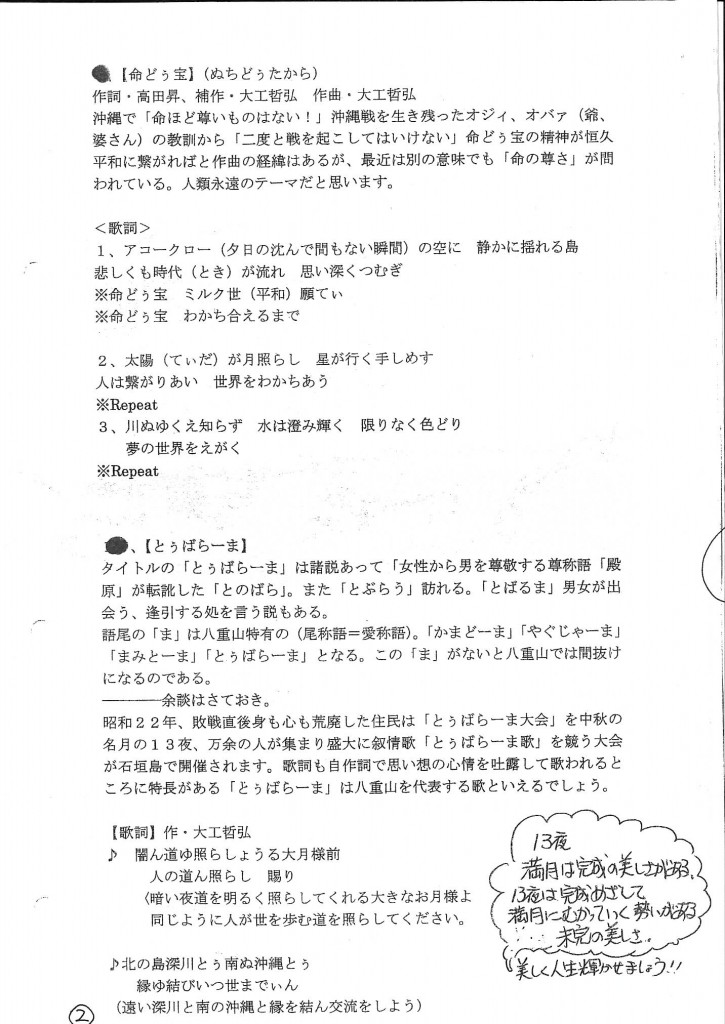 【命どぅ宝】（ぬちどぅたから）
作詞・高田昇、補作・大工哲弘　作曲・大工哲弘
沖縄で「命ほど尊いものはない！」沖縄戦を生き残ったオジィ、オバァ（爺、
婆さん）の教訓から「二度と戦を起こしてはいけない」命どぅ宝の精神が恒久
平和に繋がればと作曲の経緯はあるが、最近は別の意味でも「命の尊さ」が問
われている。人類永遠のテーマだと思います。
＜歌詞＞
１、アコークロー（夕日の沈んで間もない瞬間）の空に　静かに揺れる島
悲しくも時代（とき）が流れ　思い深くつむぎ
※命どぅ宝　ミルク世（平和）願てぃ
※命どぅ宝　わかち合えるまで
２、太陽（てぃだ）が月照らし　星が行く手しめす
人は繋がりあい　世界をわかちあう
※Repeat
３、川ぬゆくえ知らず　水は澄み輝く　限りなく色どり
夢の世界をえがく
※Repeat
、【とぅばらーま】
タイトルの「とぅばらーま」は諸説あって「女性から男を尊敬する尊称語「殿
原」が転訛した「とのばら」。また「とぶらう」訪れる。「とばるま」男女が出
会う、逢引する処を言う説もある。
語尾の「ま」は八重山特有の（尾称語＝愛称語）。「かまどーま」「やぐじゃーま」
「まみとーま」「とぅばらーま」となる。この「ま」がないと八重山では間抜け
になるのである。
————余談はさておき。
昭和２２年、敗戦直後身も心も荒廃した住民は「とぅばらーま大会」を中秋の
名月の１３夜、万余の人が集まり盛大に叙情歌「とぅばらーま歌」を競う大会
が石垣島で開催されます。歌詞も自作詞で思い想の心情を吐露して歌われると
ころに特長がある「とぅばらーま」は八重山を代表する歌といえるでしょう。
【歌詞】作・大工哲弘
♪　闇ん道ゆ照らしょうる大月様前
人の道ん照らし　賜り
〈暗い夜道を明るく照らしてくれる大きなお月様よ
同じように人が世を歩む道を照らしてください。
♪北の島深川とぅ南ぬ沖縄とぅ
縁ゆ結びいつ世までぃん
（遠い深川と南の沖縄と縁を結ん交流をしよう）
13夜
満月は完成の美しさがある。
13夜は完成めざして
満月にむかっていく勢いがある
・・・・未完の美しさ。
美しく人生輝かせましょう!!
②